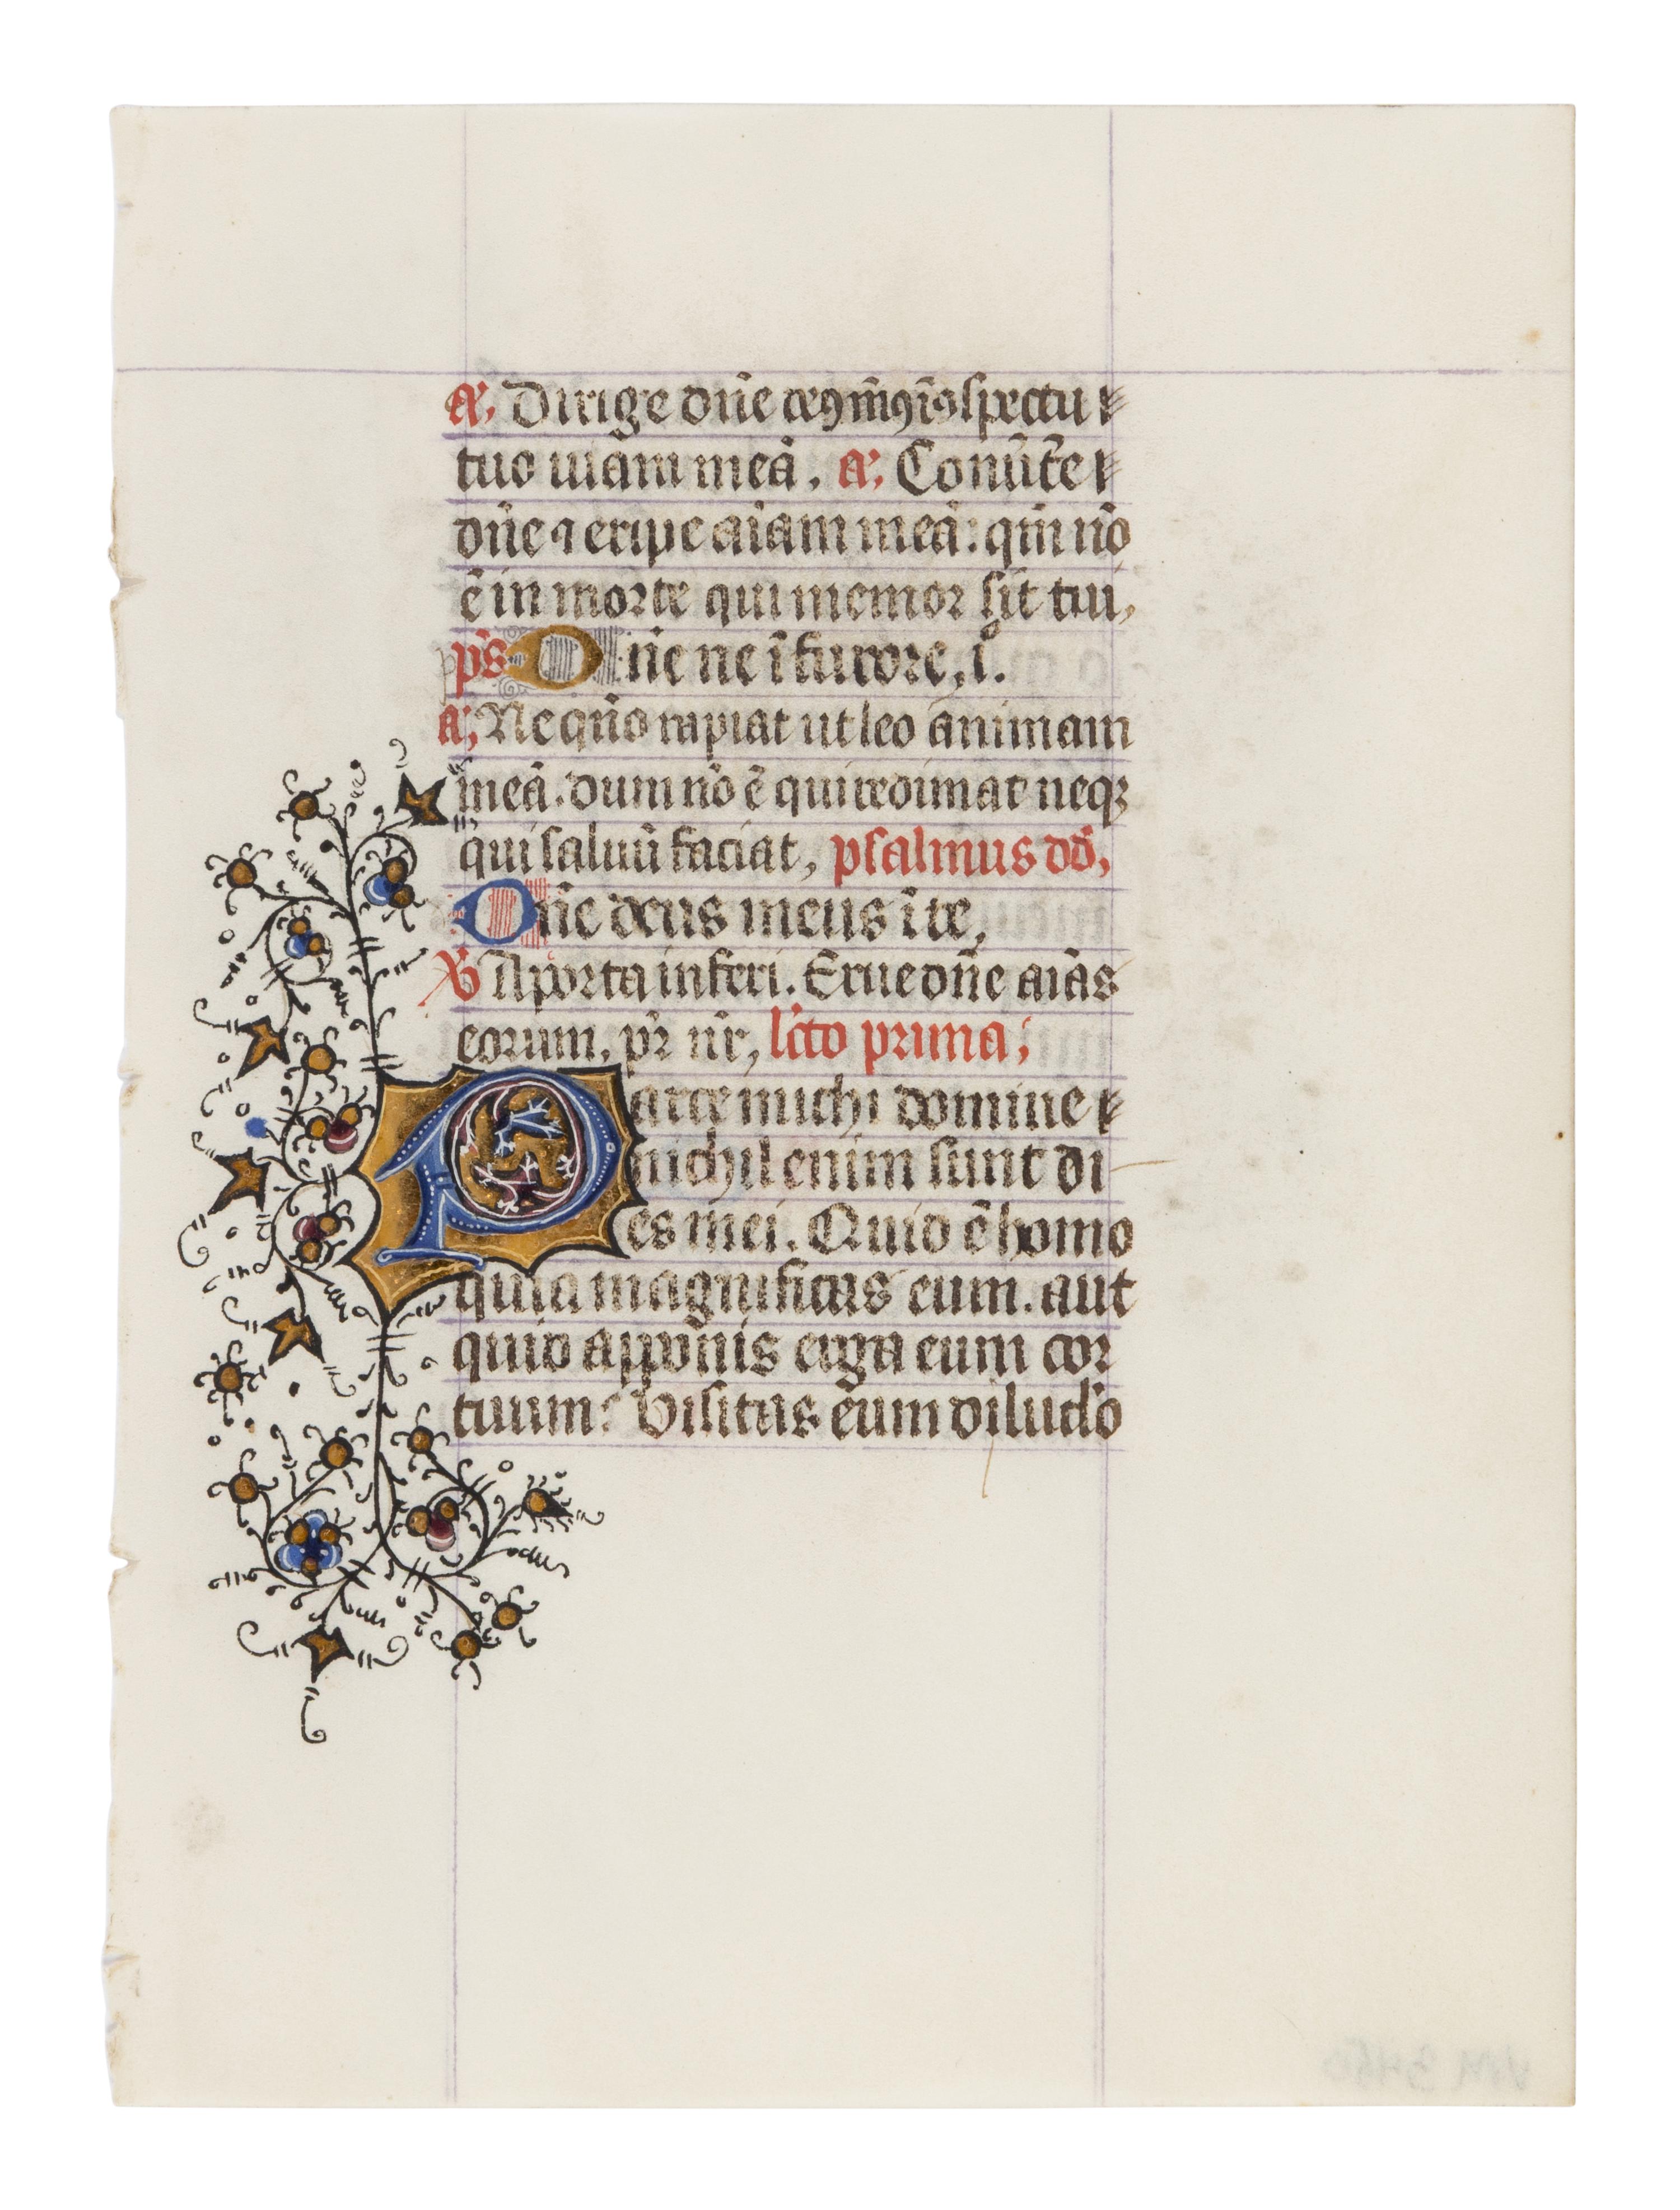 a. Dirige dn̄e deus m̄s ī ꝯspectu
tuo uiam meā. a. Conūt̄e
dn̄e ⁊ eripe aīam meā: qm̄ nō
ē in morte qui memor sit tui,
ps Dn̄e ne ī furore, i.
a, Ne qn̄o rapiat ut leo animam
meā. dum nō ē qui redimat neqꝫ
qui saluū faciat, psalmus dd,
Dn̄e deus meus ī te,
℣ A porta inferi. Erue dn̄e aīas
eorum, pr̄ nr̄, lc̄to prima,
Parce michi domine
nichil enim sunt di
es mei. Quid ē homo
quia magnificas eum. aut
quid apponis erga eum cor
tuum? Visitas eum dilucl̄o